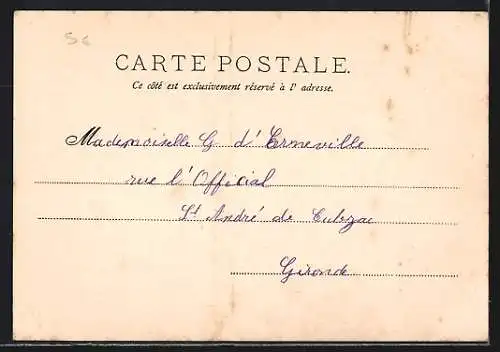 5e
CARTE POSTALE.
Ce côté est exclusivement réservé à l' adresse.
Mademoiselle G d'Erneville
rue l'Official
St André de Cubzac
Gironde